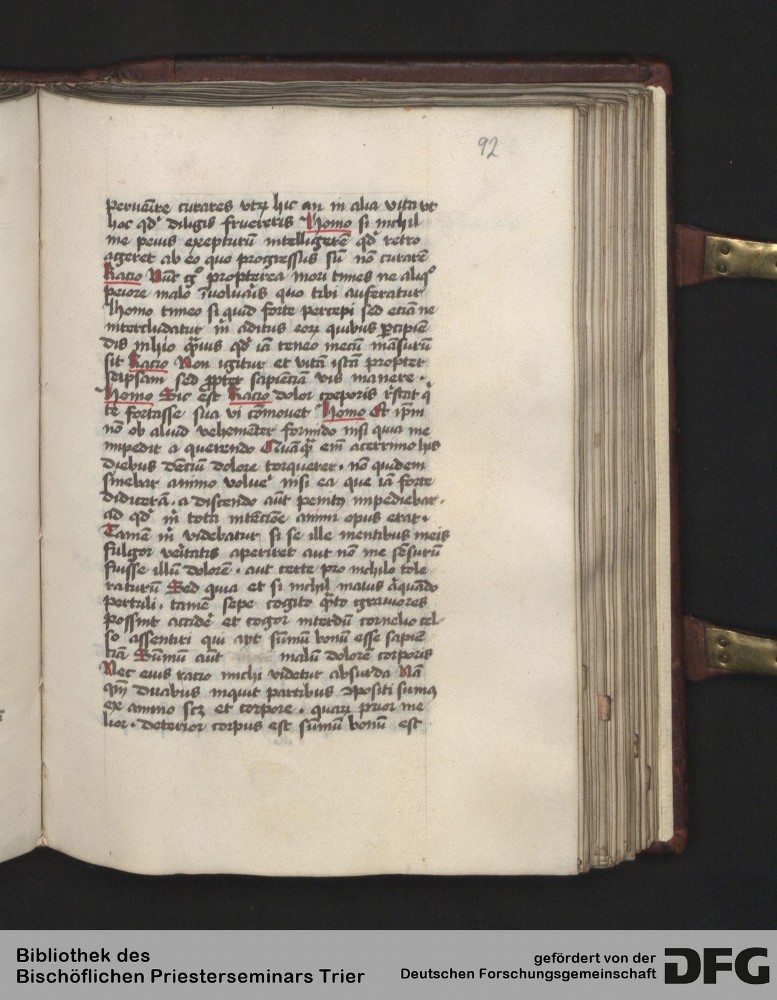 92
peruenire curares vtrum hic an in alia vita vt
hoc quod diligis fruereris Homo si nichil
me peius excepturum intelligerem quod retro
ageret ab eo quo progressus sum non curarem
Racio Nunc ergo propterea mori times ne aliquo
peiore malo inuoluaris quo tibi auferatur
Homo timeo si quid forte percepi sed eciam ne
intercludatur michi aditus eorum quibus percipien
dis inhio quamuis quod iam teneo mecum mansurum
sit Racio Non igitur et vitam istam propter
seipsam sed propter sapienciam vis manere .
Homo Sic est Racio dolor corporis restat qui
te fortasse sua vi commouet Homo Et ipsum
non ob aliud vehementer formido nisi quia me
impedit a querendo Quamquam enim acerrimo his
diebus dencium dolore torquerer . non quidem
sinebar animo voluere nisi ea que iam forte
didiceram . a discendo autem penitus impediebar .
ad quod michi tota intencione animi opus erat .
Tamen michi videbatur si se ille mentibus meis
fulgor veritatis aperiret aut non me sensurum
fuisse illum dolorem . aut certe pro nichilo tole
raturum Sed quia et si nichil maius aliquando
pertuli . tamen sepe cogito quanto grauiores
possint accidere et cogor interdum cornelio cel
so assentiri qui ayt summum bonum esse sapien
tiam Summum autem malum dolorem corporis
Nec eius racio michi videtur absurda Nam
quoniam duabus inquit partibus compositi sumus
ex animo scilicet et corpore . quarum prior me
lior . deterior corpus est summum bonum est
Bibliothek des
Bischöflichen Priesterseminars Trier
gefördert von der
Deutschen Forschungsgemeinschaft
DFG